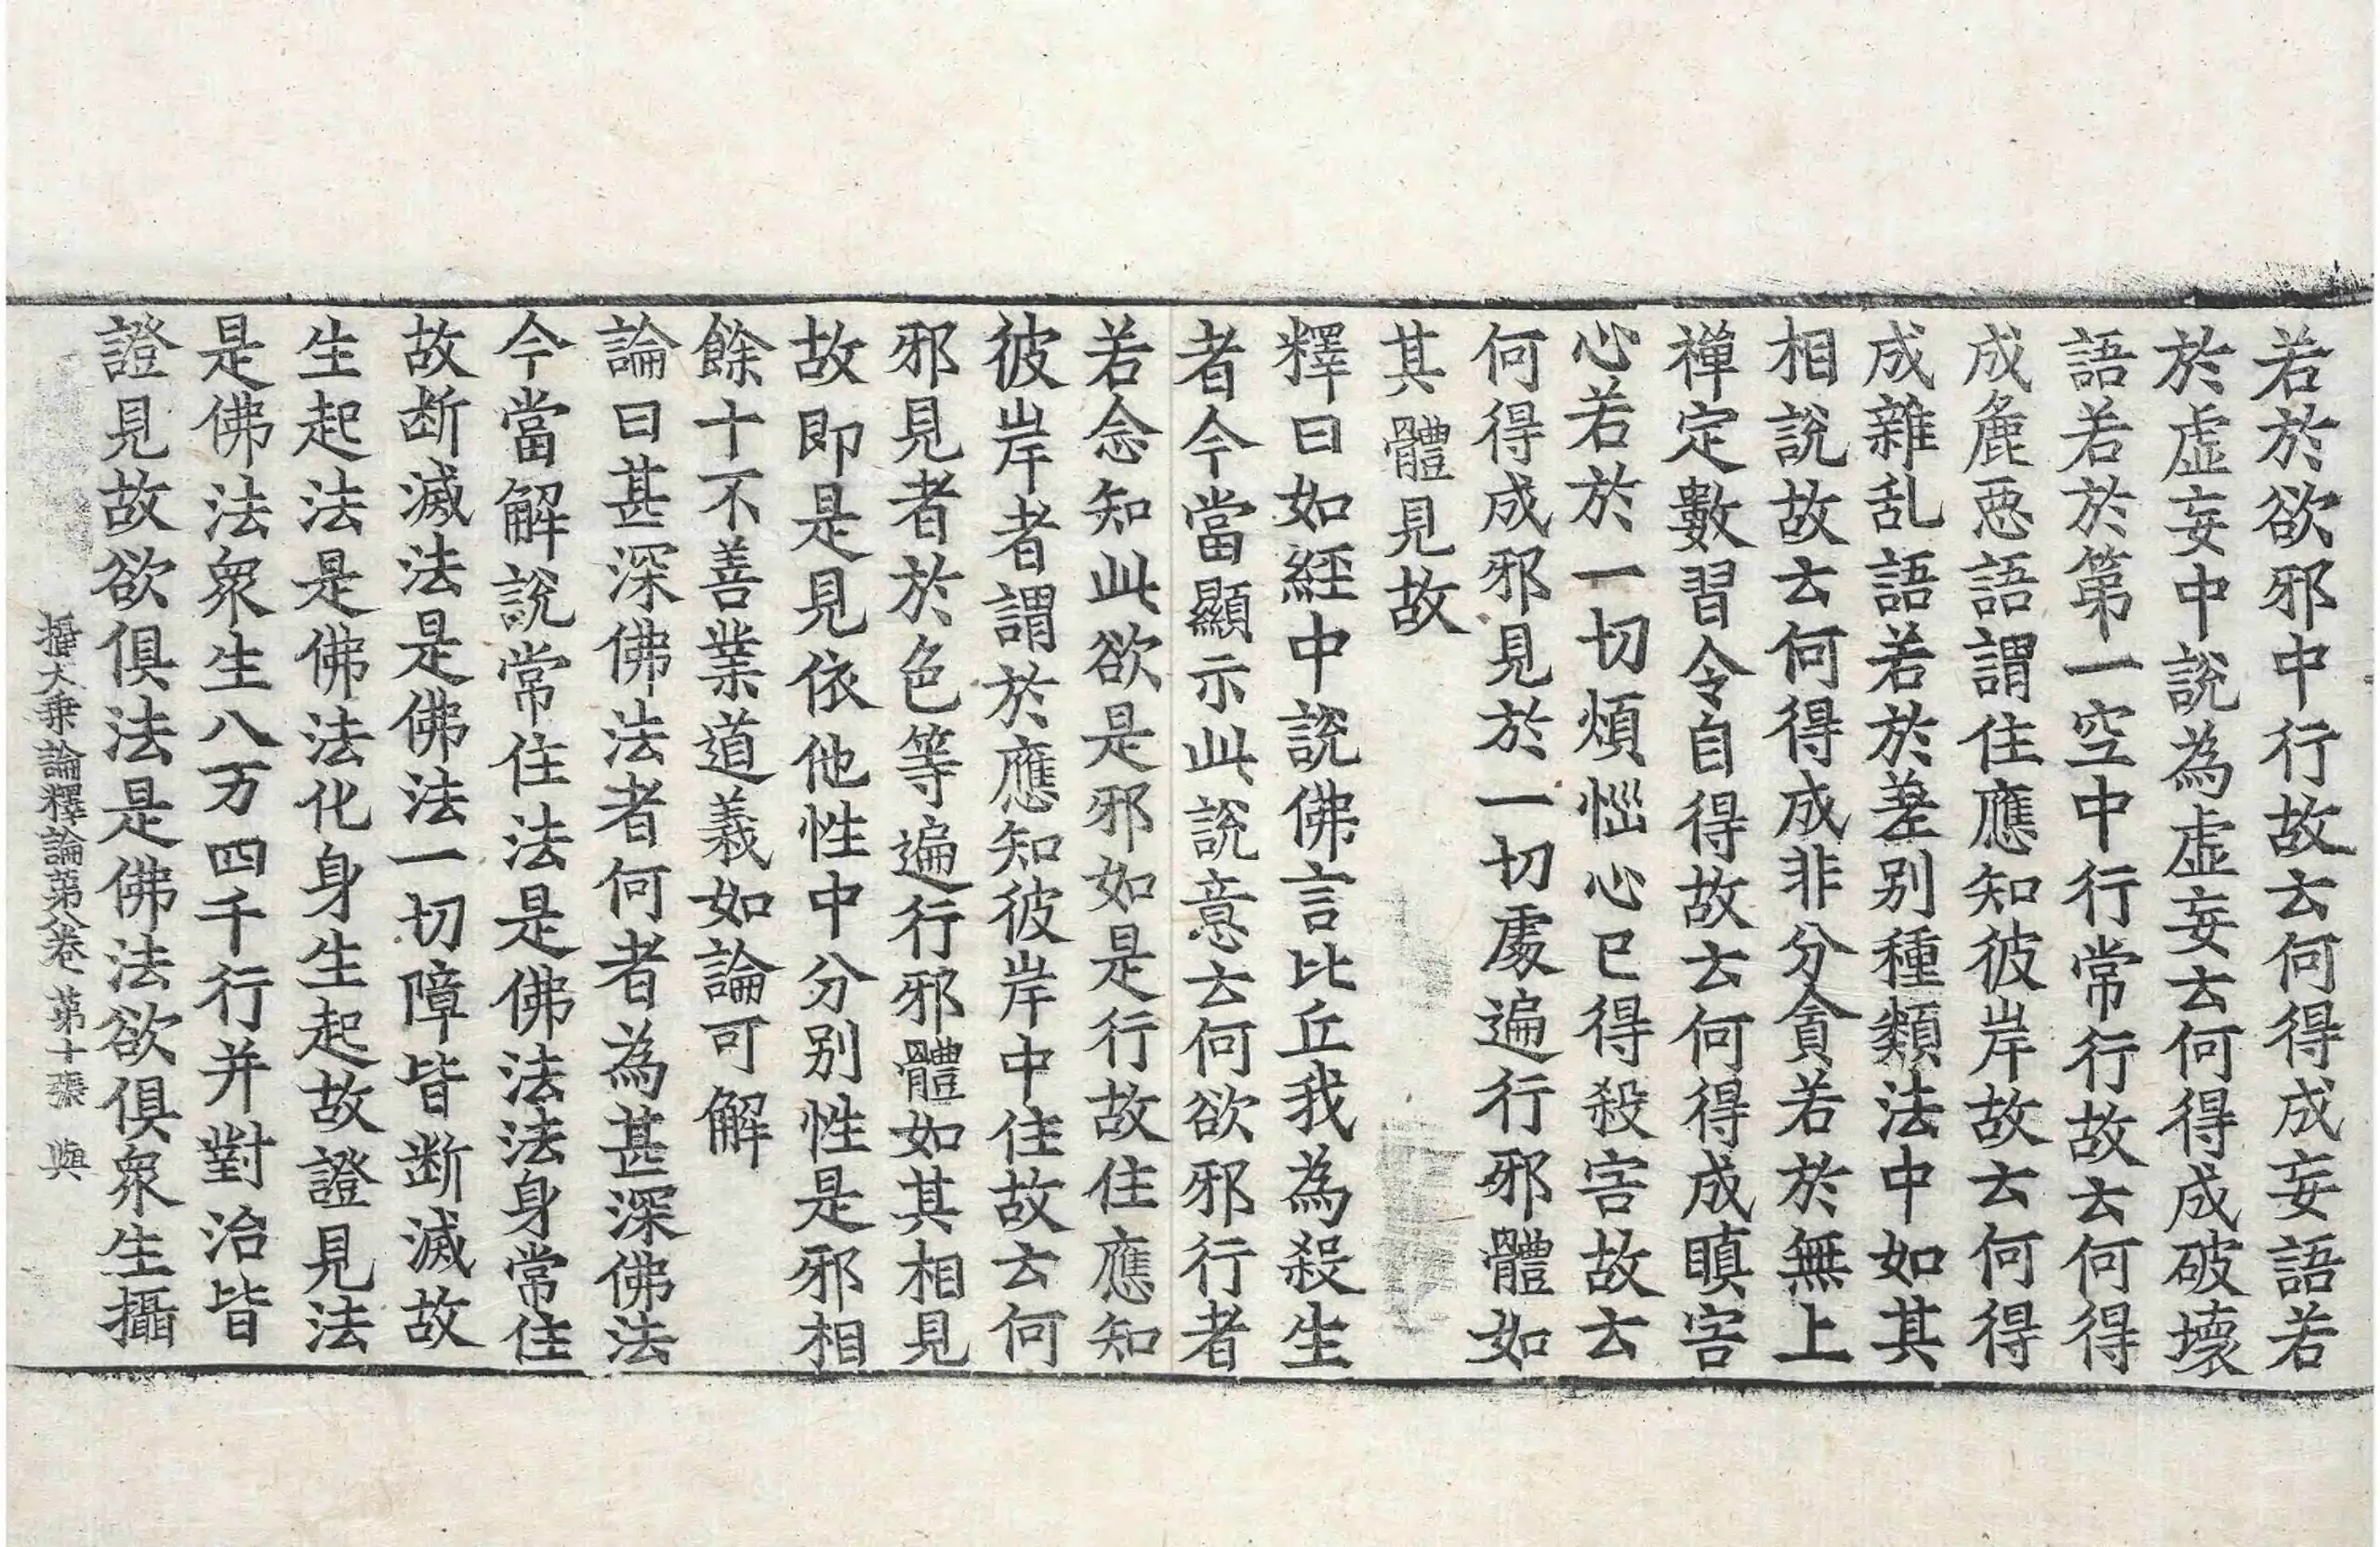 若於欲邪中行故去何得成妄語若
於虛妄中說為虛妄去何得成破壞
語若於第一空中行常行故去何得
成麁惡語謂住應知彼岸故去何得
成雜乱語若於差別種類法中如其
相說故去何得成非分貪若於無上
禅定數習令自得故去何得成瞋害
心若於一切煩惱心已得殺害故去
何得成邪見於一切處遍行邪體如
其體見故
釋曰如經中說佛言比丘我為殺生
者今當顯示此說意去何欲邪行者
若念知此欲是邪如是行故住應知
彼岸者謂於應知彼岸中住故去何
邪見者於色等遍行邪體如其相見
故即是見依他性中分別性是邪相
餘十不善業道義如論可解
論曰甚深佛法者何者為甚深佛法
今當解說常住法是佛法法身常住
故断滅法是佛法一切障皆断滅故
生起法是佛法化身生起故證見法
是佛法衆生八万四千行并對治皆
證見故欲俱法是佛法欲俱衆生攝
攝大乘論釋論第八卷 第十張 與